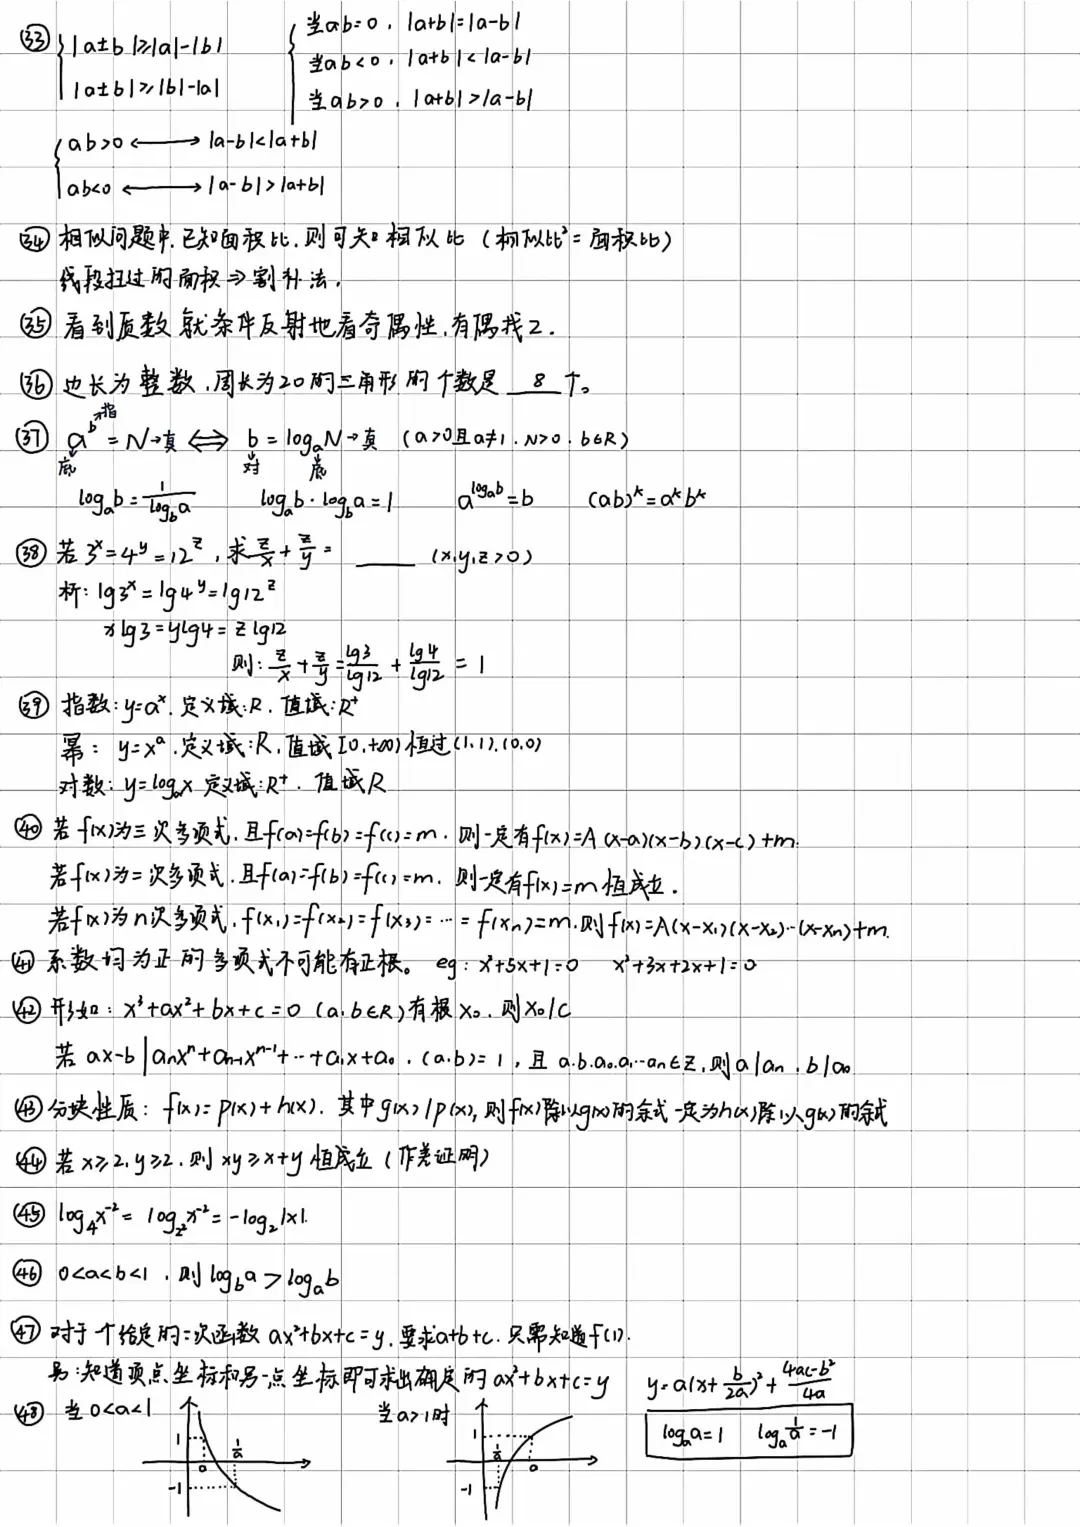 ㉝ { |a±b|≥|a|-|b|
|a±b|≥|b|-|a|
{ 当ab=0，|a+b|=|a-b|
当ab<0，|a+b|<|a-b|
当ab>0，|a+b|>|a-b|
{ ab>0 ⟷ |a-b|<|a+b|
ab<0 ⟷ |a-b|>|a+b|
㉞ 相似问题中，已知面积比，则可知相似比（相似比²=面积比）
线段扫过的面积⇒割补法．
㉟ 看到质数就条件反射地看奇偶性，有偶找2．
㊱ 边长为整数，周长为20的三角形的个数是 8 个。
㊲ a^b=N→真 ⟺ b=logₐN→真 （a>0且a≠1，N>0，b∈R）
指 底 对 底
logₐb=1/log_b a  logₐb·log_b a=1  a^(logₐb)=b  (ab)^k=a^k b^k
㊳ 若3^x=4^y=12^z，求z/x+z/y=____（x,y,z>0）
析：lg3^x=lg4^y=lg12^z
xlg3=ylg4=zlg12
则：z/x+z/y=lg3/lg12+lg4/lg12=1
㊴ 指数：y=a^x．定义域：R．值域：R⁺
幂：y=x^a．定义域：R，值域[0,+∞) 恒过(1,1)，(0,0)
对数：y=logₐx 定义域：R⁺．值域R
㊵ 若f(x)为三次多项式，且f(a)=f(b)=f(c)=m．则一定有f(x)=A(x-a)(x-b)(x-c)+m．
若f(x)为二次多项式，且f(a)=f(b)=f(c)=m．则一定有f(x)=m恒成立．
若f(x)为n次多项式，f(x₁)=f(x₂)=f(x₃)=…=f(xₙ)=m．则f(x)=A(x-x₁)(x-x₂)…(x-xₙ)+m．
㊶ 系数均为正的多项式不可能有正根。eg：x²+5x+1=0  x³+3x+2x+1=0
㊷ 形如：x³+ax²+bx+c=0（a，b∈R）有根x₀．则x₀|c
若 ax-b|aₙxⁿ+aₙ₋₁xⁿ⁻¹+…+a₁x+a₀，(a,b)=1，且a.b.a₀.a₁…aₙ∈Z，则a|aₙ，b|a₀
㊸ 分块性质：f(x)=p(x)+h(x)．其中g(x)|p(x)，则f(x)除以g(x)的余式一定为h(x)除以g(x)的余式
㊹ 若x≥2，y≥2．则xy≥x+y恒成立（作差证明）
㊺ log₄x⁻²=log_{2²}x⁻²=-log₂|x|．
㊻ 0<a<b<1，则log_b a>logₐb
㊼ 对于一个给定的二次函数ax²+bx+c=y．要求a+b+c．只需知道f(1)．
另：知道顶点坐标和另一点坐标即可求出确定的ax²+bx+c=y  y=a(x+b/2a)²+(4ac-b²)/4a
㊽ 当0<a<1  当a>1时  logₐa=1  logₐ1/a=-1
1  a  1/a  -1
1  1/a  a  -1